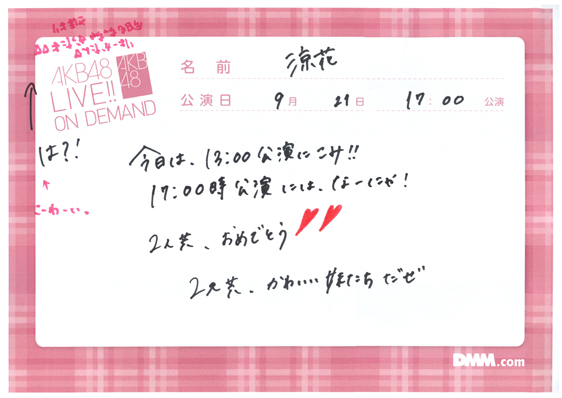 AKB48
LIVE!!
ON DEMAND
AKB
48
名前 涼花
公演日 9月 21日 17:00 公演
は?!
今日は、13:00公演にこみ!!
17:00時公演には、なーにゃ!
2人共、おめでとう
2人共、かわいい妹たちだぜ
DMM.com